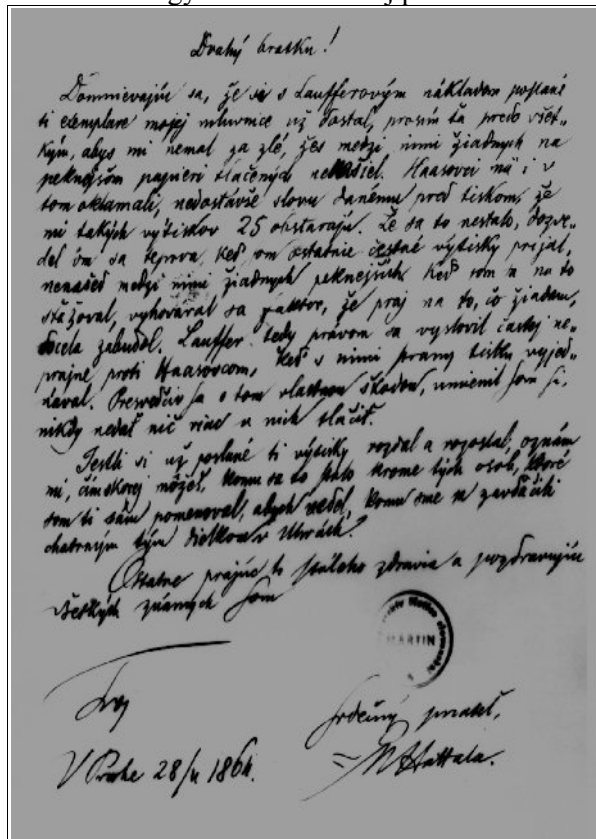 Drahý bratku!
Domnievajúc sa, že si s Laufferovým nákladom poslané
ti exemplare mojej mluvnice už dostal, prosím ťa predo všet-
kým, abys mi nemal za zlé, žes medzi nimi žiadnych na
peknejšom papieri tlačených nenašiel. Haasovci ma i v
tom oklamali, nedostávše slovu danému pred tiskom, že
mi takých výtiskov 25 obstarajú. Že sa to nestalo, dozve-
del som sa teprva, keď som ostatnie čestné výtisky prijal,
nenašed medzi nimi žiadnych peknejších. Keď som sa na to
stažoval, vyhováral sa faktor, že praj na to, čo žiadam,
docela zabudol. Lauffer tedy právom sa vyslovil častej ne-
prajne proti Haasovcom, keď s nimi strany tisku vyjed-
nával. Presvedčiv sa o tom vlastnou škodou, umienil som si,
nikdy nedať nič viac u nich tlačiť.
Jestli si už poslané ti výtisky rozdal a rozostal, oznám
mi, čím skorej môžeš, komu sa to krome tých osôb, ktoré
som ti sám pomenoval, abych vedel, komu sme sa zavďačili
chatrným tým dielkom v Uhrách.
Ostatne prajúc ti stáleho zdravia a pozdravujúc
všetkých známych som
MARTIN
Tvoj
srdečný priateľ,
V Prahe 28/ 1864.
M Hattala.